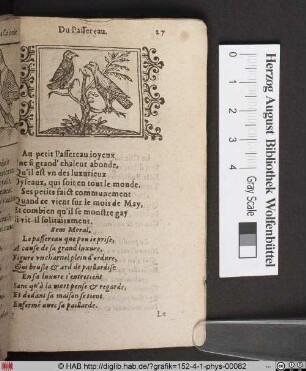 Du Passereau. 27
Au petit Passereau joyeux
si grand' chaleur abonde,
Qu'il est vn des luxurieux
Oyseaux, qui soit en tout le monde.
Ses petits faict communement
Quand ce vient sur le mois de May,
Et combien qu'il se monstre gay
vit-il solitairement.
Sens Moral.
Le passereau que peu je prise,
A cause de sa grand luxure,
Figure vn charnel plein d'ordure,
Qui brusle & ard de paillardise.
En sa luxure s'entretient
Sans qu'à la mort pense & regarde,
Et dedans sa maison se tient
Enfermé avec sa paillarde.
Le
Herzog August Bibliothek Wolfenbüttel
Gray Scale
© HAB http://diglib.hab.de/?grafik=152-4-1-phys-00082